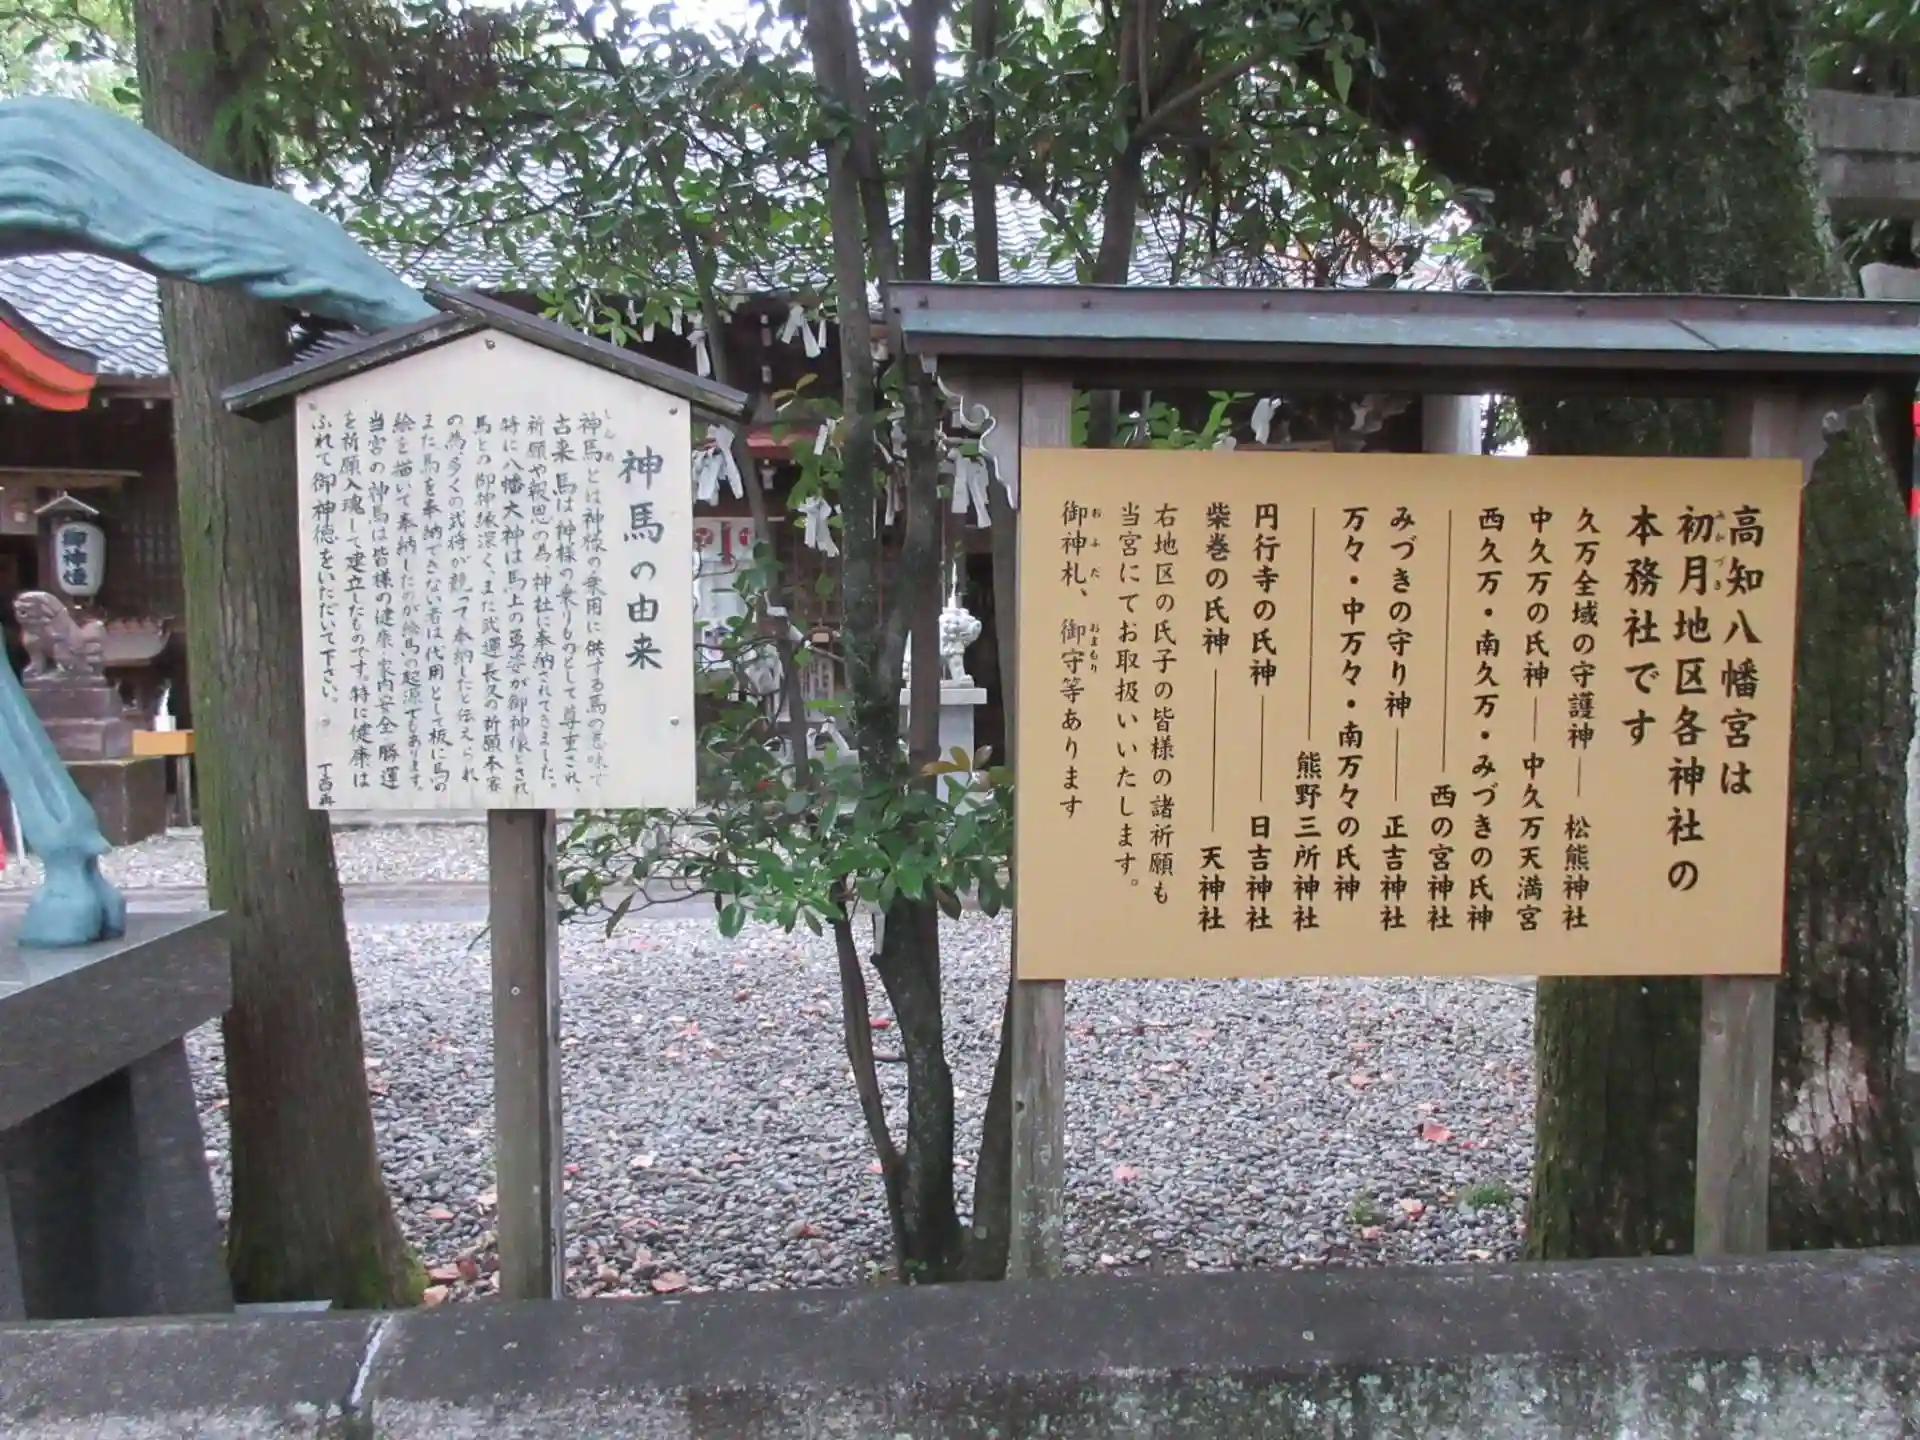 高知八幡宮は
初月地区各神社の
みかづき
本務社です
久万全域の守護神―松熊神社
中久万の氏神―中久万天満宮
西久万・南久万・みづきの氏神
―西の宮神社
みづきの守り神―正吉神社
万々・中万々・南万々の氏神
―熊野三所神社
円行寺の氏神―日吉神社
柴巻の氏神―天神社
右地区の氏子の皆様の諸祈願も
当宮にてお取扱いいたします。
御神札、御守等あります
おふだ
おまもり
神馬の由来
しんめ
神馬とは神様の乗用に供する馬の意味で
古来馬は神様の乗りものとして尊重され、
祈願や報恩の為、神社に奉納されてきました。
特に八幡大神は馬上の勇姿が御神像とされ
馬との御神縁深く、また武運長久の祈願本客
の為、多くの武将が競って奉納したと伝えられ
また馬を奉納できない者は代用として板に馬の
絵を描いて奉納したのが絵馬の起源でもあります。
当宮の神馬は皆様の健康 家内安全 勝運
を祈願入魂して建立したものです。特に健康は
ふれて御神徳をいただいて下さい。
丁酉再
御神燈